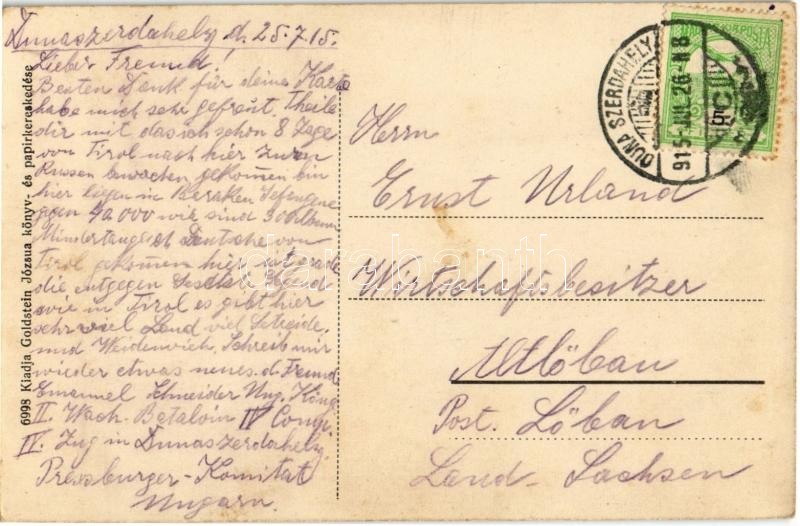 Dunaszerdahely d. 25.7.15.
Lieber Freund!
Besten Dank für deine Karte
habe mich sehr gefraut. Theile
dir mit das ich schon 8 Tage
von Tirol nach hier zu den
Russen bewachen gekommen bin
hier liegen in Baraken Gefangene
gegen 40.000 wir sind 300 Mann
Deutsche von
Tirol gekommen hier ist grade
die entgegen Gesetzte Gegend
wie in Tirol es gibt hier
sehr viel Land viel Getreide,
und Weidenvieh. Schreib mir
wieder etwas neues. d. Freund
Emanuel Schneider Ung. König
II. Wach. Bataloin IV Comp.
IV. Zug in Dunaszerdahely.
Pressburger-Komitat
Ungarn.
6998 Kiadja Goldstein Józsua könyv- és papirkereskedése
DUNA SZERDAHELY
915 JUL. 26 N8
Herrn
Ernst Urland
Wirtschaftsbesitzer
Altlöbau
Post. Löbau
Land-Sachsen
darabanth